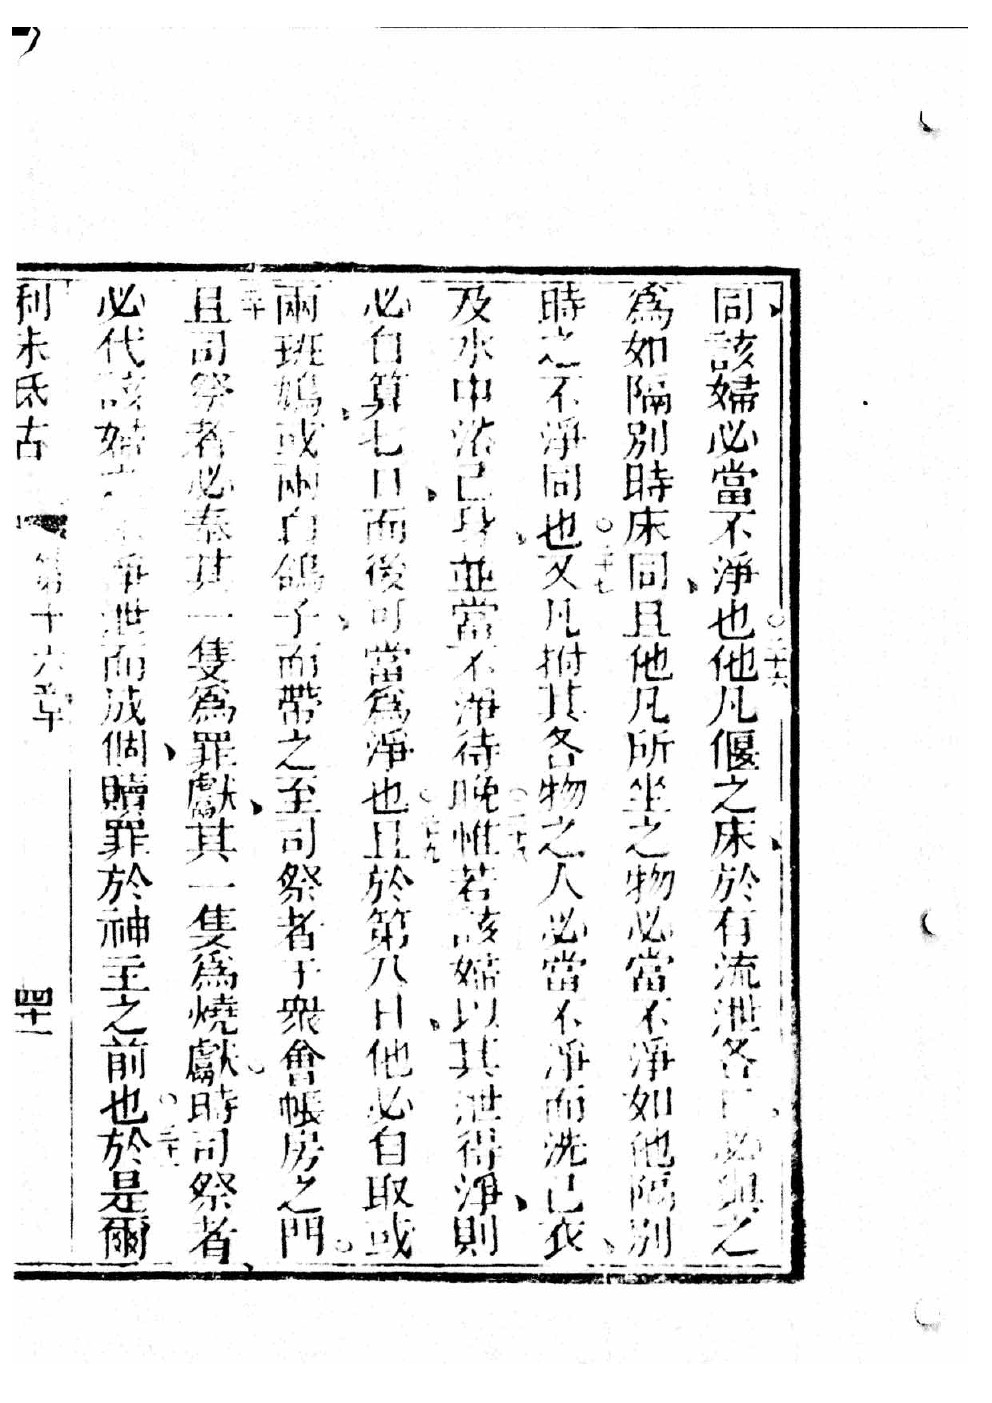 同該婦必當不淨也○二十六他凡偃之床於有流泄各日必與之
爲如隔別時床同且他凡所坐之物必當不淨如他隔別
時之不淨同也○二十七又凡拊其各物之人必當不淨而洗己衣
及水中浴己身並當不淨待晚○二十八惟若該婦以其泄得淨則
必自算七日而後可當爲淨也○二十九且於第八日他必自取或
兩班鳩或兩白鴿子而帶之至司祭者于衆會帳房之門○
三十且司祭者必奉其一隻爲罪獻其一隻爲燒獻○時司祭者
必代該婦淨泄而成個贖罪於神主之前也○三十一於是爾
利未氐古 第十六章 四十一